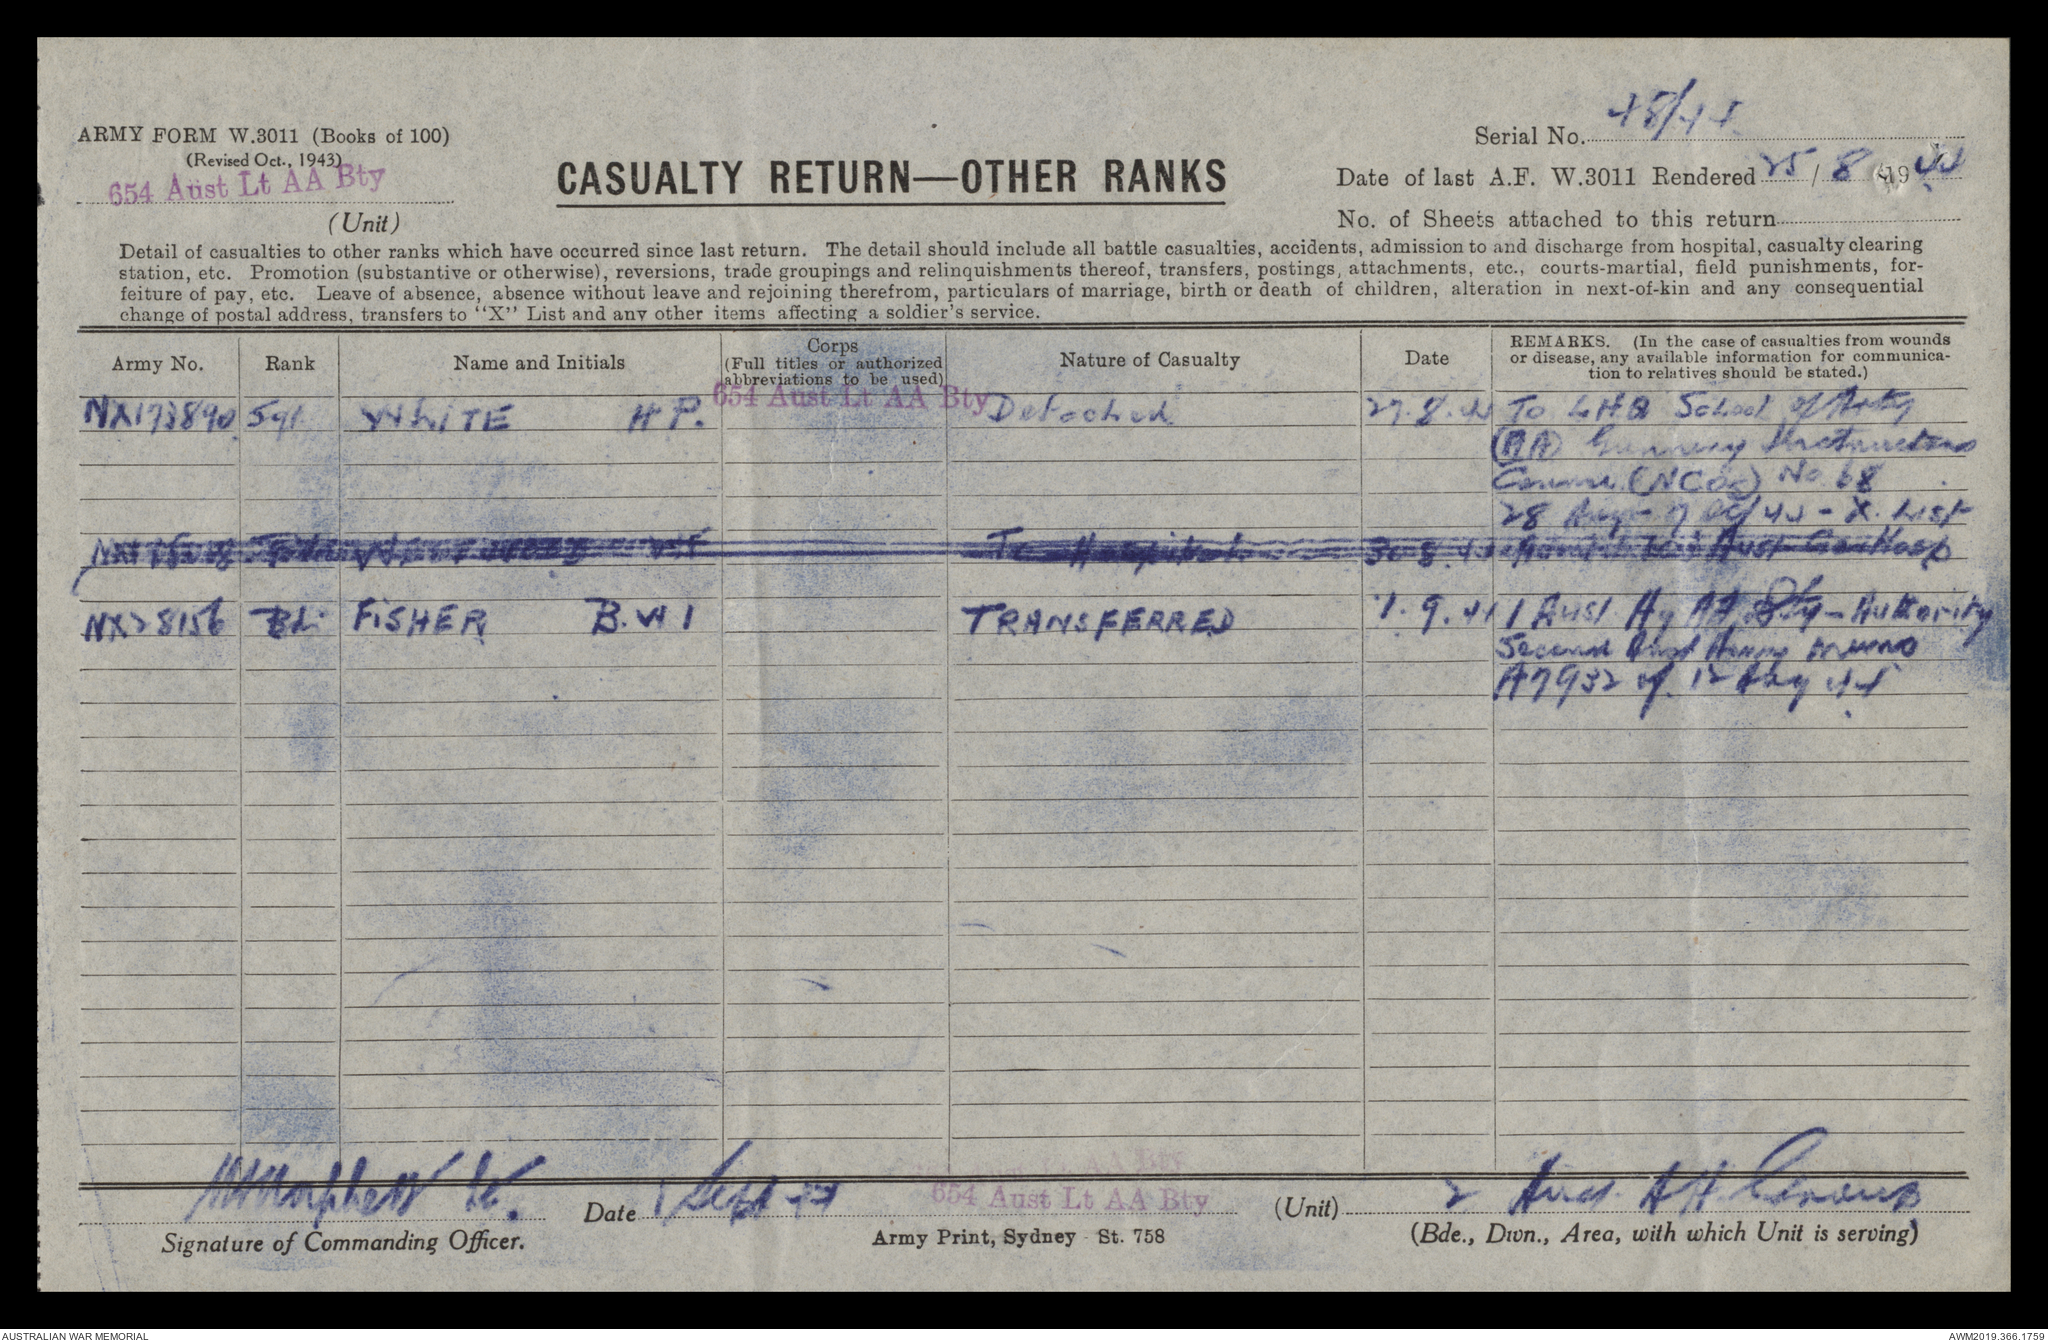 ARMY FORM W.3011 (Books of 100)
(Revised Oct., 1943)
654 Aust Lt AA Bty
(Unit)
CASUALTY RETURN—OTHER RANKS
Serial No. 48/44.
Date of last A.F. W.3011 Rendered 25/8/1944
No. of Sheets attached to this return
Detail of casualties to other ranks which have occurred since last return. The detail should include all battle casualties, accidents, admission to and discharge from hospital, casualty clearing
station, etc. Promotion (substantive or otherwise), reversions, trade groupings and relinquishments thereof, transfers, postings, attachments, etc., courts-martial, field punishments, for-
feiture of pay, etc. Leave of absence, absence without leave and rejoining therefrom, particulars of marriage, birth or death of children, alteration in next-of-kin and any consequential
change of postal address, transfers to "X" List and any other items affecting a soldier's service.
Army No. Rank Name and Initials Corps (Full titles or authorized abbreviations to be used) Nature of Casualty Date REMARKS. (In the case of casualties from wounds or disease, any available information for communica-tion to relatives should be stated.)
654 Aust Lt AA Bty
NX173890 Sgt WHITE H P. Detached 27.8.44 To LHQ School of Arty
(AA) Gunnery Instructors
Course (NCOs) No 68
28 Aug - 7 Oct 44 - X. List
To Hospital 30.8.44 Aust Gen Hosp
NX28156 Bdr FISHER B.W I TRANSFERRED 1.9.44 1 Aust Hy AA Bty - Authority
Second Aust Army memo
A7932 of 12 Aug 44
Date 1 Sept 44 654 Aust Lt AA Bty (Unit) 2 Aust AA Group
Signature of Commanding Officer. Army Print, Sydney St. 758 (Bde., Divn., Area, with which Unit is serving)
AUSTRALIAN WAR MEMORIAL AWM2019.366.1759